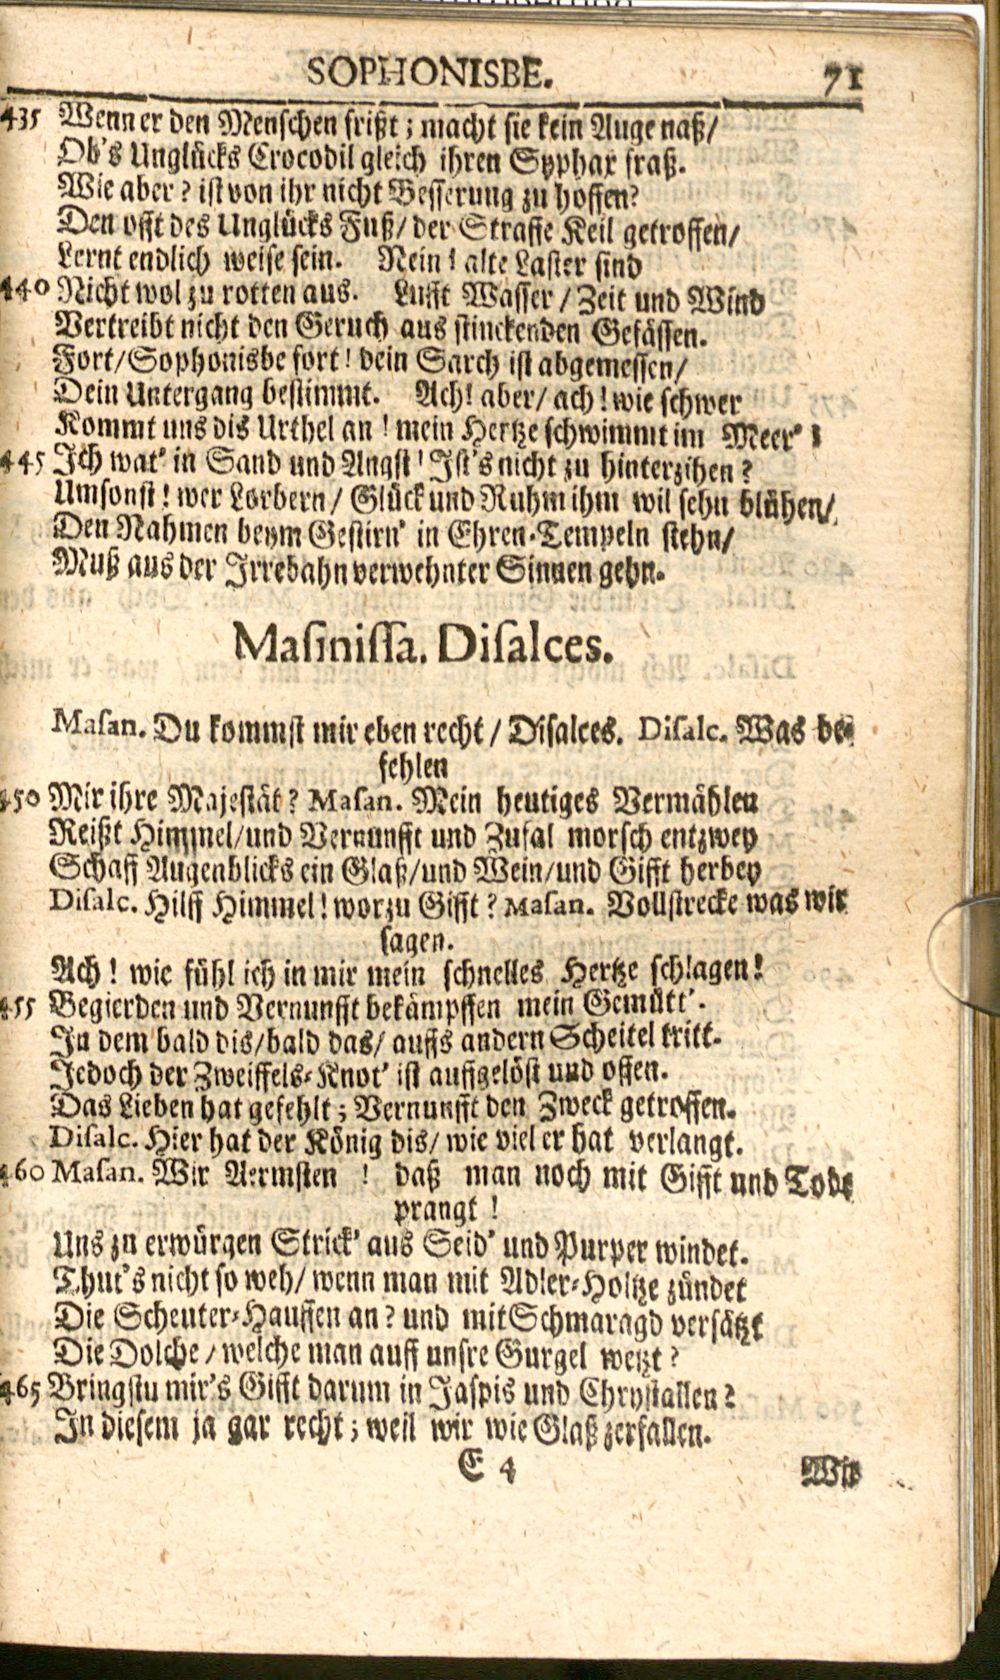 SOPHONISBE. 71
435 Wenn er den Menschen frißt; macht sie kein Auge naß/
Ob's Unglücks Crocodil gleich ihren Syphax fraß.
Wie aber? ist von ihr nicht Besserung zu hoffen?
Den offt des Unglücks Fuß/ der Straffe Keil getroffen/
Lernt endlich weise sein. Nein! alte Laster sind
440 Nicht wol zu rotten aus. Lufft Wasser/ Zeit und Wind
Vertreibt nicht den Geruch aus stinckenden Gefässen.
Fort/ Sophonisbe fort! dein Sarch ist abgemessen/
Dein Untergang bestimmt. Ach! aber/ ach! wie schwer
Kommt uns dis Urthel an! mein Hertze schwimmt im Meer'!
445 Ich wat' in Sand und Angst! Ist's nicht zu hinterzihen?
Umsonst! wer Lorbern/ Glück und Ruhm ihm wil sehn blühen/
Den Nahmen beym Gestirn' in Ehren-Tempeln stehn/
Muß aus der Irrebahn verwehnter Sinnen gehn.
Masinissa. Disalces.
Masan. Du kommst mir eben recht/ Disalces. Disalc. Was be-
fehlen
450 Mir ihre Majestät? Masan. Mein heutiges Vermählen
Reißt Himmel/ und Vernunfft und Zufal morsch entzwey
Schaff Augenblicks ein Glaß/ und Wein/ und Gifft herbey
Disalc. Hilff Himmel! worzu Gifft? Masan. Vollstrecke was wir
sagen.
Ach! wie fühl ich in mir mein schnelles Hertze schlagen!
455 Begierden und Vernunfft bekämpffen mein Gemütt'.
In dem bald dis/ bald das/ auffs andern Scheitel tritt.
Jedoch der Zweiffels-Knot' ist auffgelöst und offen.
Das Lieben hat gefehlt; Vernunfft den Zweck getroffen.
Disalc. Hier hat der König dis/ wie viel er hat verlangt.
460 Masan. Wir Aermsten! daß man noch mit Gifft und Tode
prangt!
Uns zu erwürgen Strick' aus Seid' und Purper windet.
Thut's nicht so weh/ wenn man mit Adler-Holtze zündet
Die Scheuter-Hauffen an? und mit Schmaragd versätzt
Die Dolche/ welche man auff unsre Gurgel wetzt?
465 Bringstu mir's Gifft darum in Jaspis und Chrystallen?
In diesem ja gar recht; weil wir wie Glaß zerfallen.
E 4 Wir